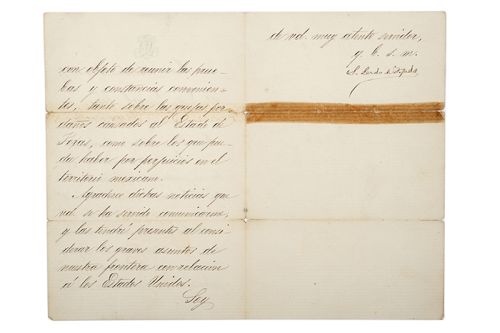 con objeto de reunir las prue-
bas y constancias convenien-
tes, tanto sobre las quejas por
daños causados al Estado de
Texas, como sobre los que pue-
da haber por perjuicios en el
territorio mexicano.
Agradezco dichas noticias que
vd. se ha servido comunicarme,
y las tendré presentes al consi-
derar los graves asuntos de
nuestra frontera con relacion
á los Estados Unidos.
Soy
de vd. muy atento servidor,
q. b. s. m.
S. Lerdo de Tejada